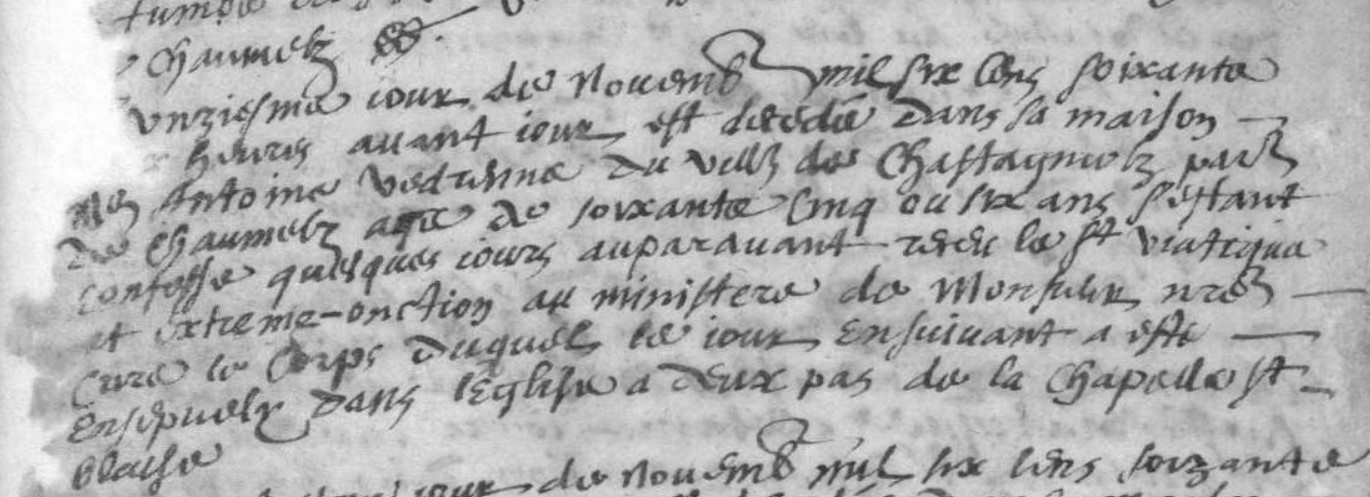 chaumelz
unziesme iour de Novemb mil six cens soixante
heures avant iour est decedé dans sa maison
Me Antoine vedrenne du villz de Chastagniolz parz
de chaumelz agé de soixante cinq ou six ans s'estant
confessé quelques iours auparavant receu le st viatique
et extreme-onction au ministere de Monsieur nrez
curé le corps duquel le iour ensuivant a esté
ensepvely dans l'Eglise a deux pas de la chapelle st
blaise
iour de novemb mil six cens soixante